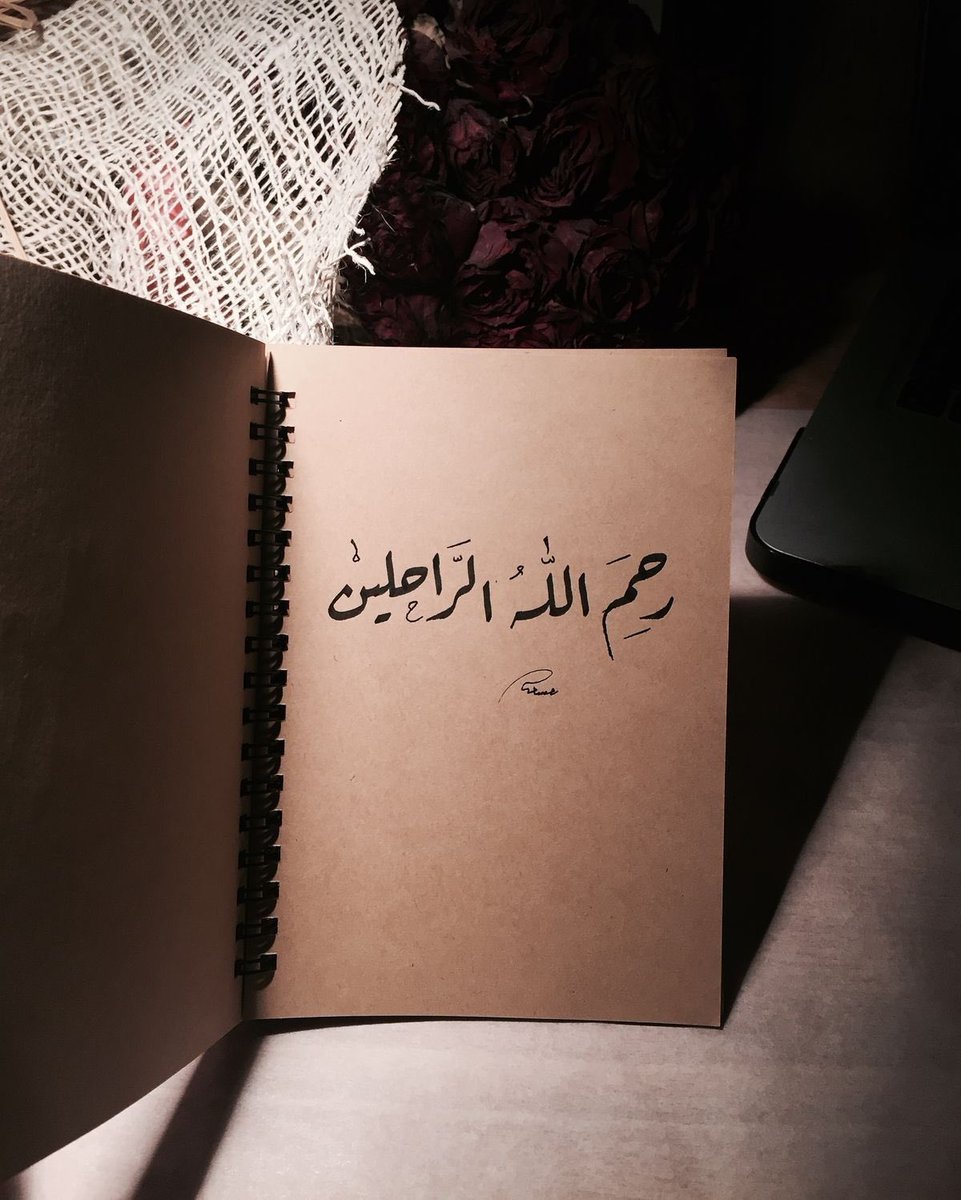 رحِمَ اللّٰهُ الرَّاحلينْ